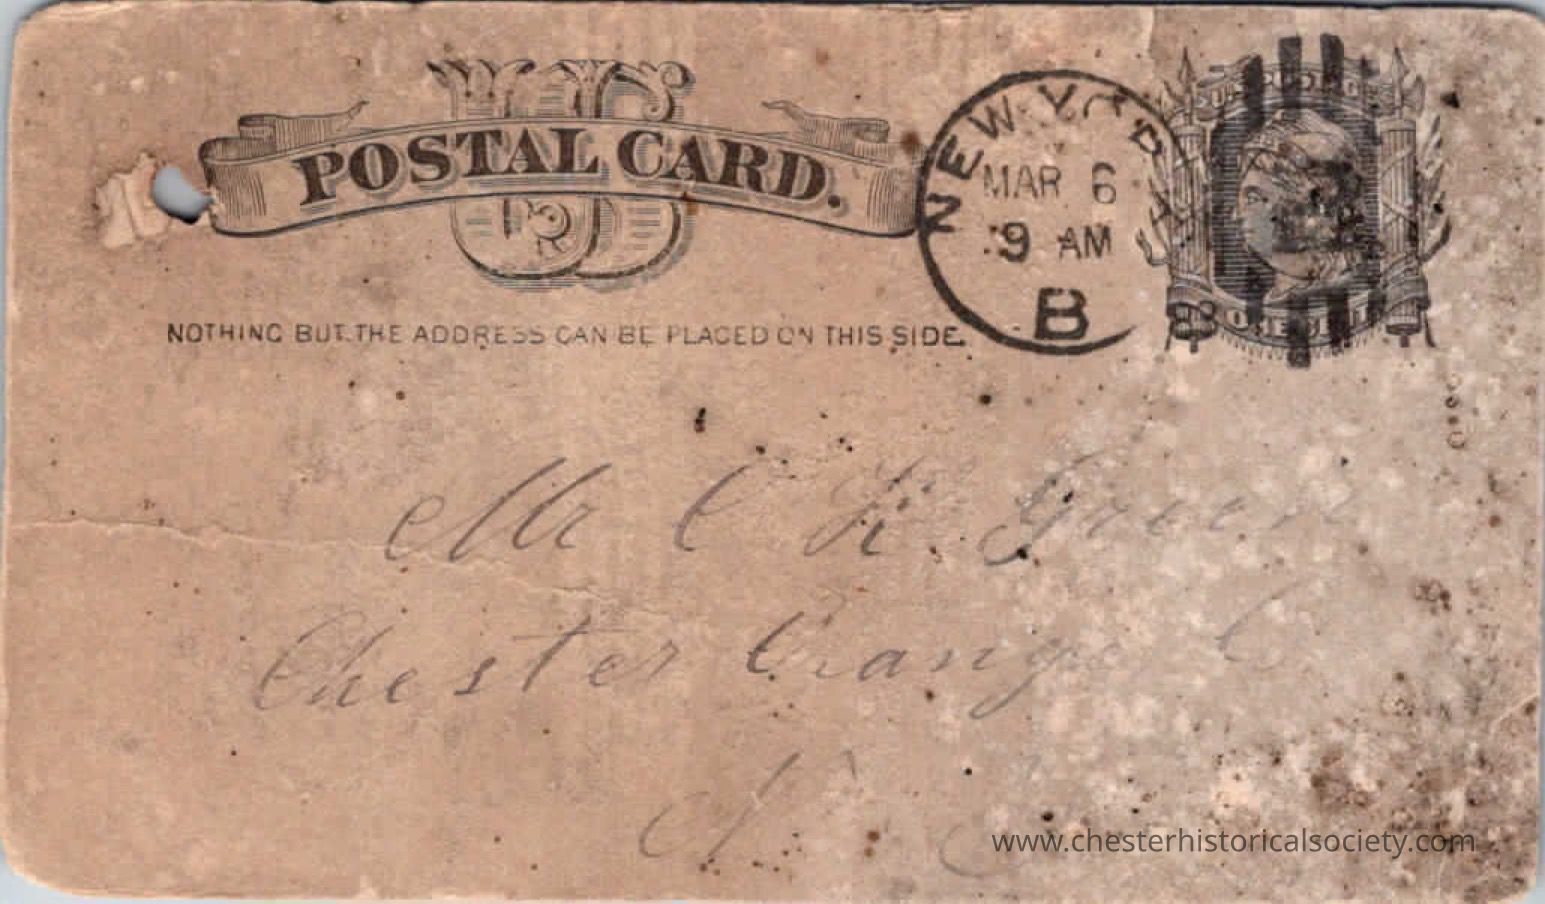 POSTAL CARD.
NEW YORK
MAR 6
9 AM
B
U.S. POSTAGE
ONE CENT
NOTHING BUT THE ADDRESS CAN BE PLACED ON THIS SIDE.
Mr C R Green
Chester Orange C
N
www.chesterhistoricalsociety.com